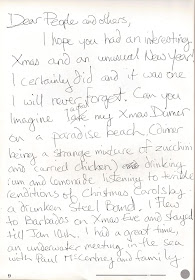 Dear People and others,
I hope you had an interesting
Xmas and an unusual New Year!
I certainly did and it was one
I will never forget. Can you
Imagine late my Xmas Dinner
on a paradise beach. Dinner
being a strange mixture of zucchini
and curried chicken) drinking
rum and lemonade. listening to terrible
renditions of Christmas Carols by
a drunken Steel Band, I flew
to Barbados on Xmas Eve and stayed
till Jan 10th. I had a great time,
an underwater meeting in the sea
with Paul McCartney and family